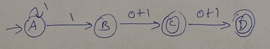 A 1 B 0+1 C 0+1 D